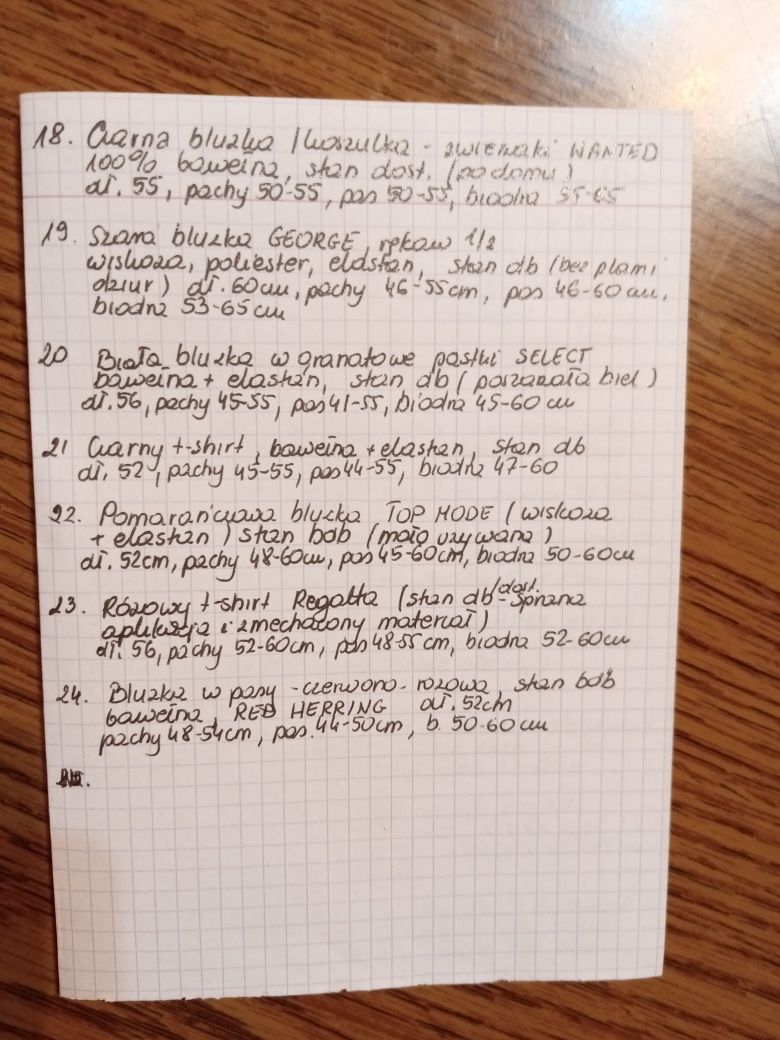 18. Czarna bluzka / koszulka - zwierzaki WANTED
100% bawełna, stan dost. (po domu)
dł. 55, pachy 50-55, pas 50-55, biodra 55-65
19. Szara bluzka GEORGE, rękaw 1/2
wiskoza, poliester, elastan, stan db (bez plam i
dziur) dł. 60cm, pachy 46-55cm, pas 46-60cm,
biodra 53-65cm
20 Biała bluzka w granatowe paski SELECT
bawełna + elastan, stan db (poszarzała biel)
dł. 56, pachy 45-55, pas 41-55, biodra 45-60cm
21 Czarny t-shirt, bawełna + elastan, stan db
dł. 52, pachy 45-55, pas 44-55, biodra 47-60
22. Pomarańczowa bluzka TOP MODE (wiskoza
+ elastan) stan bdb (mało używana)
dł. 52cm, pachy 48-60cm, pas 45-60cm, biodra 50-60cm
23. Różowy t-shirt Regatta (stan db/dost. - sprana
aplikacja i zmechacony materiał)
dł. 56, pachy 52-60cm, pas 48-55cm, biodra 52-60cm
24. Bluzka w pasy - czerwono-różowa, stan bdb
bawełna, RED HERRING dł. 52cm
pachy 48-54cm, pas. 44-50cm, b. 50-60cm